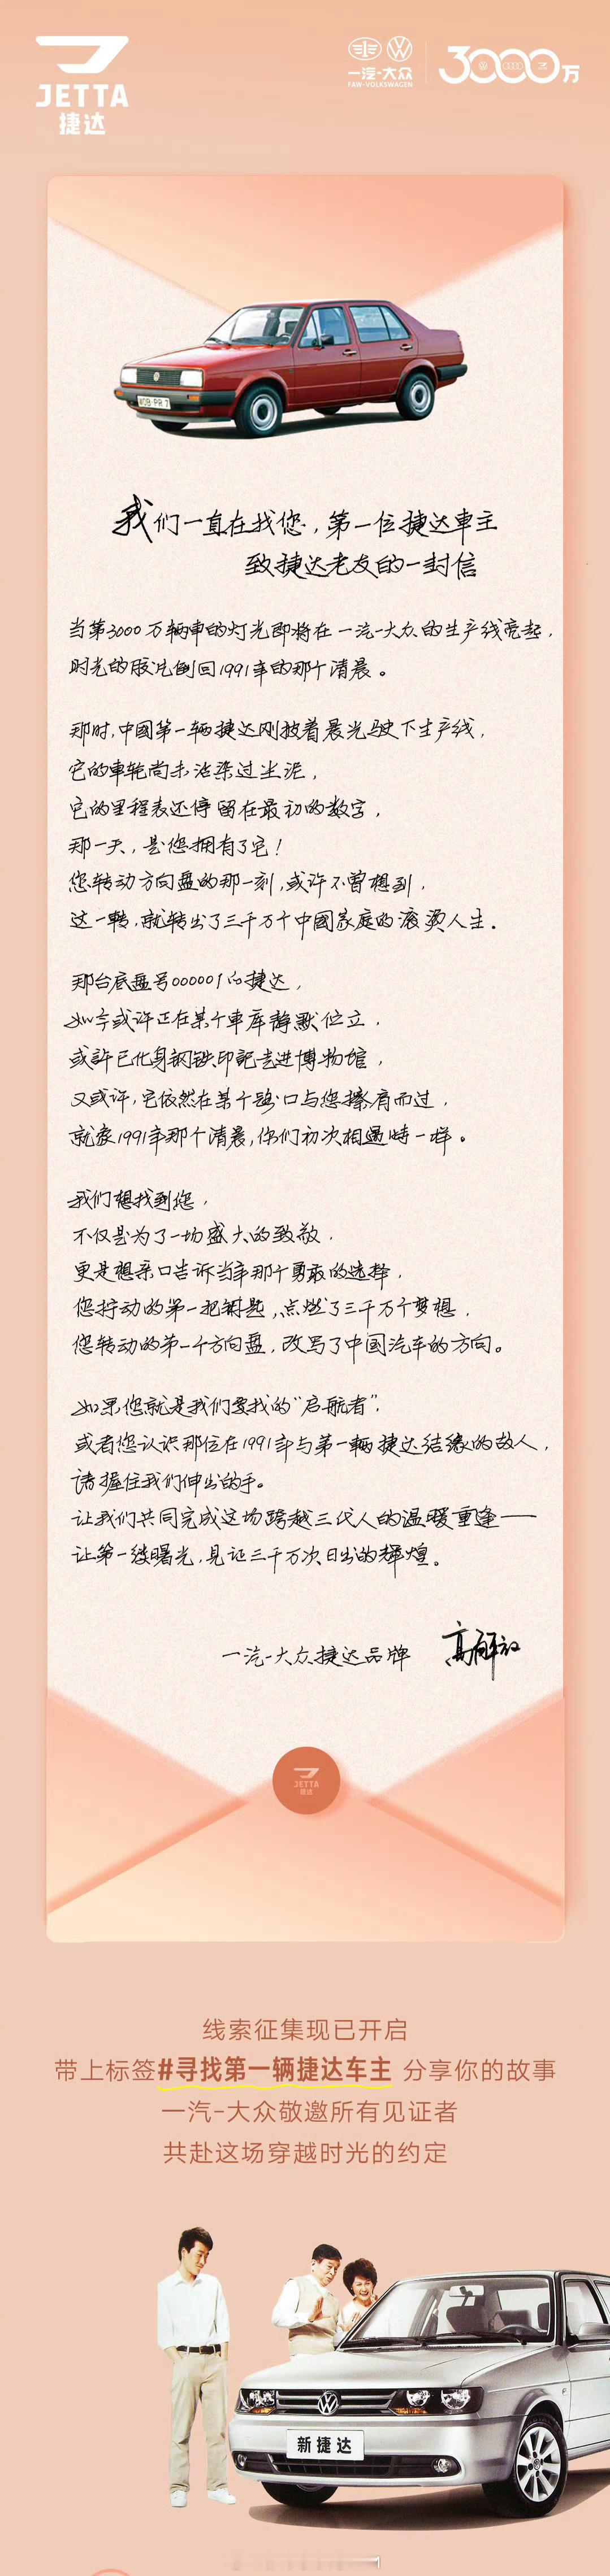 JETTA
捷达
一汽-大众
FAW-VOLKSWAGEN
3000万
WOB PR 7
我们一直在找您，第一位捷达車主
致捷达老友的一封信
当第3000万辆車的灯光即将在一汽-大众的生产线亮起，
时光的胶片倒回1991年的那个清晨。
那时，中國第一辆捷达刚披着晨光驶下生产线，
它的車轮尚未沾染过尘泥，
它的里程表还停留在最初的数字，
那一天，是您拥有了它！
您转动方向盘的那一刻，或许不曾想到，
这一转，就转出了三千万个中國家庭的滚烫人生。
那台底盘号000001的捷达，
如今或许正在某个車库静默伫立，
或許已化身钢铁印記走进博物馆，
又或许，它依然在某个路口与您擦肩而过，
就象1991年那个清晨，你们初次相遇時一样。
我们想找到您，
不仅是为了一场盛大的致敬，
更是想亲口告诉当年那个勇敢的选择，
您拧动的第一把钥匙，点燃了三千万个梦想，
您转动的第一个方向盘，改写了中国汽车的方向。
如果您就是我们要找的“启航者”，
或者您认识那位在1991年与第一辆捷达结缘的故人，
请握住我们伸出的手。
让我们共同完成这场跨越三代人的温暖重逢——
让第一缕曙光，见证三千万次日出的辉煌。
一汽-大众捷达品牌 高解放
JETTA
捷达
线索征集现已开启
带上标签#寻找第一辆捷达车主 分享你的故事
一汽-大众敬邀所有见证者
共赴这场穿越时光的约定
新捷达